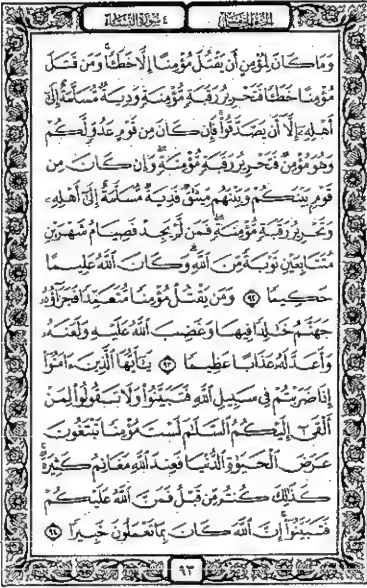 الجزء الخامس ٤ سورة النساء
وَمَا كَانَ لِمُؤْمِنٍ أَن يَقْتُلَ مُؤْمِنًا إِلَّا خَطَـًٔا ۚ وَمَن قَتَلَ
مُؤْمِنًا خَطَـًٔا فَتَحْرِيرُ رَقَبَةٍ مُّؤْمِنَةٍ وَدِيَةٌ مُّسَلَّمَةٌ إِلَىٰٓ
أَهْلِهِۦٓ إِلَّآ أَن يَصَّدَّقُوا۟ ۚ فَإِن كَانَ مِن قَوْمٍ عَدُوٍّ لَّكُمْ
وَهُوَ مُؤْمِنٌ فَتَحْرِيرُ رَقَبَةٍ مُّؤْمِنَةٍ ۖ وَإِن كَانَ مِن
قَوْمٍۭ بَيْنَكُمْ وَبَيْنَهُم مِّيثَـٰقٌ فَدِيَةٌ مُّسَلَّمَةٌ إِلَىٰٓ أَهْلِهِۦ
وَتَحْرِيرُ رَقَبَةٍ مُّؤْمِنَةٍ ۖ فَمَن لَّمْ يَجِدْ فَصِيَامُ شَهْرَيْنِ
مُتَتَابِعَيْنِ تَوْبَةً مِّنَ ٱللَّهِ ۗ وَكَانَ ٱللَّهُ عَلِيمًا
حَكِيمًا ٩٢ وَمَن يَقْتُلْ مُؤْمِنًا مُّتَعَمِّدًا فَجَزَآؤُهُۥ
جَهَنَّمُ خَـٰلِدًا فِيهَا وَغَضِبَ ٱللَّهُ عَلَيْهِ وَلَعَنَهُۥ
وَأَعَدَّ لَهُۥ عَذَابًا عَظِيمًا ٩٣ يَـٰٓأَيُّهَا ٱلَّذِينَ ءَامَنُوٓا۟
إِذَا ضَرَبْتُمْ فِى سَبِيلِ ٱللَّهِ فَتَبَيَّنُوا۟ وَلَا تَقُولُوا۟ لِمَنْ
أَلْقَىٰٓ إِلَيْكُمُ ٱلسَّلَـٰمَ لَسْتَ مُؤْمِنًا تَبْتَغُونَ
عَرَضَ ٱلْحَيَوٰةِ ٱلدُّنْيَا فَعِندَ ٱللَّهِ مَغَانِمُ كَثِيرَةٌ ۚ
كَذَٰلِكَ كُنتُم مِّن قَبْلُ فَمَنَّ ٱللَّهُ عَلَيْكُمْ
فَتَبَيَّنُوٓا۟ ۚ إِنَّ ٱللَّهَ كَانَ بِمَا تَعْمَلُونَ خَبِيرًا ٩٤
٩٣